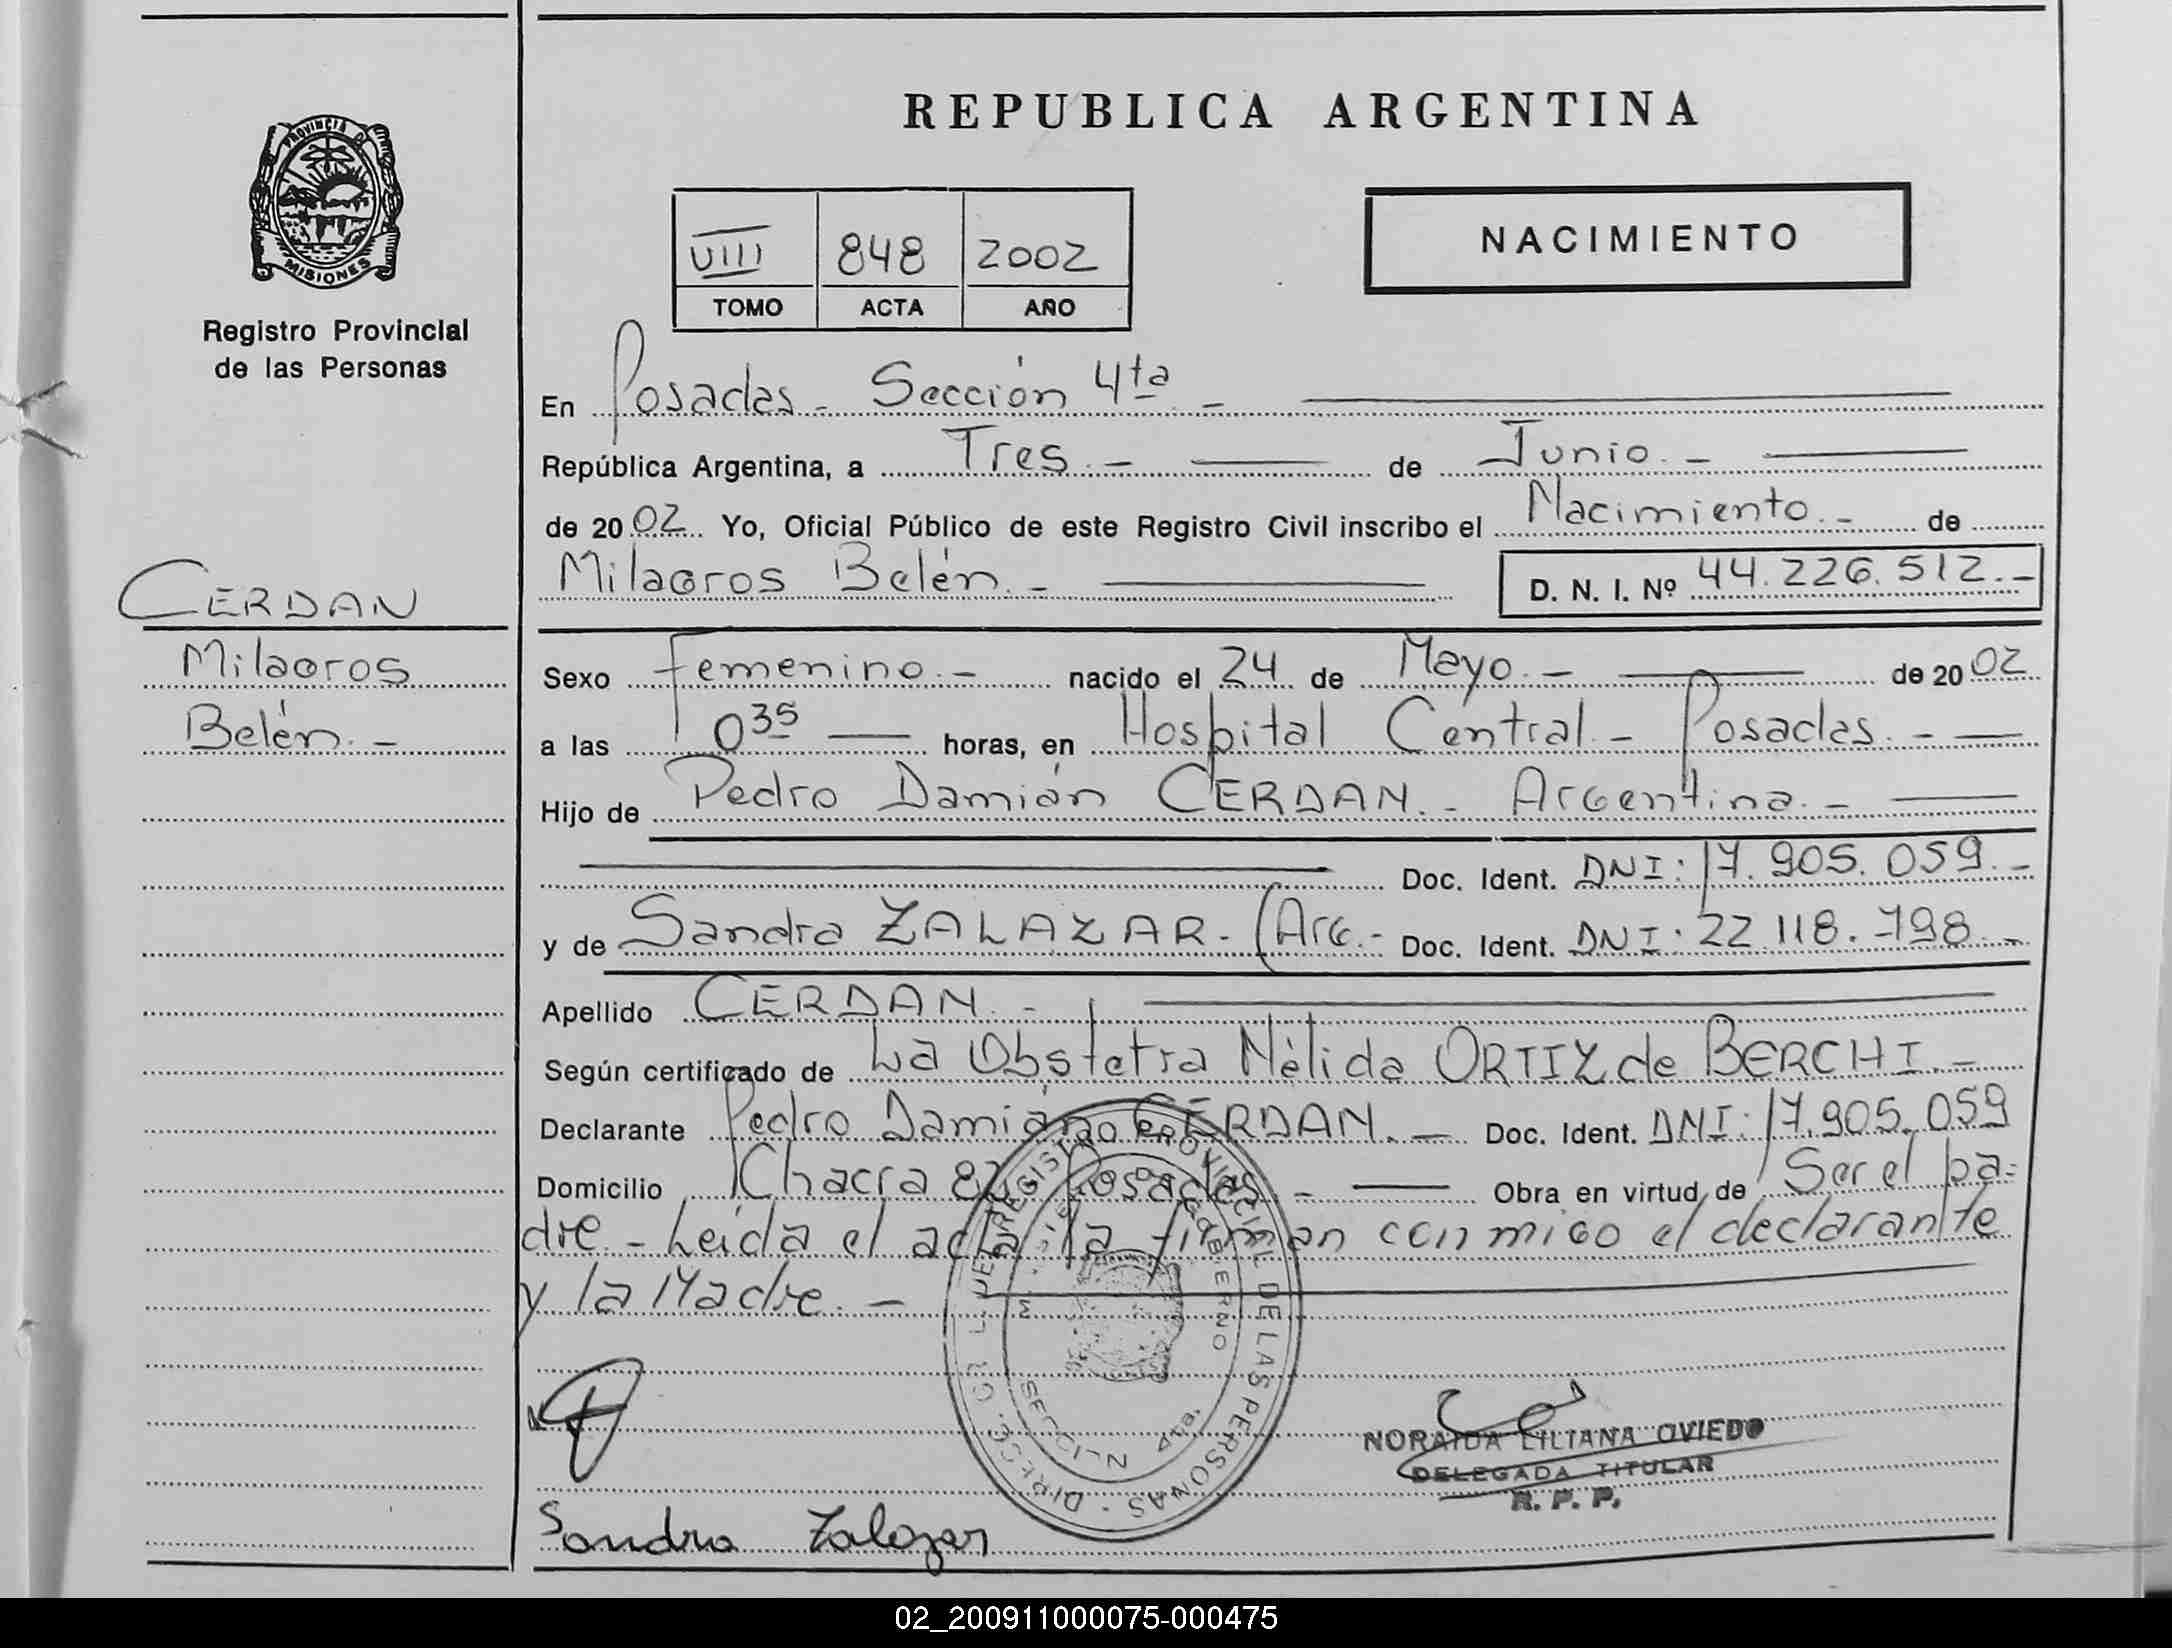 REPUBLICA ARGENTINA
PROVINCIA DE
MISIONES
Registro Provincial
de las Personas
VIII 848 2002
TOMO ACTA AÑO
NACIMIENTO
En Posadas - Sección 4ta -
República Argentina, a Tres.- de Junio.-
de 2002 Yo, Oficial Público de este Registro Civil inscribo el Nacimiento.- de
Milagros Belén.- D. N. I. Nº 44.226.512.-
CERDAN
Milagros
Belén.-
Sexo Femenino.- nacido el 24 de Mayo.- de 2002
a las 0 35 horas, en Hospital Central - Posadas.-
Hijo de Pedro Damián CERDAN.- Argentina.-
Doc. Ident. DNI: 17.905.059.-
y de Sandra ZALAZAR.- (Arg.- Doc. Ident. DNI: 22.118.798.-
Apellido CERDAN.-
Según certificado de La Obstetra Nélida ORTIZ de BERCHI.-
Declarante Pedro Damián CERDAN.- Doc. Ident. DNI: 17.905.059
Domicilio Chacra Posadas.- Obra en virtud de Ser el pa-
dre.- Leída el acta la firman conmigo el declarante
y la Madre.-
DIRECC. GRAL. DEL REGISTRO PROVINCIAL DE LAS PERSONAS
GOBIERNO
SECCION 4ta.
NORAIDA LILIANA OVIEDO
DELEGADA TITULAR
R. P. P.
Sandra Zalazar
02_200911000075-000475